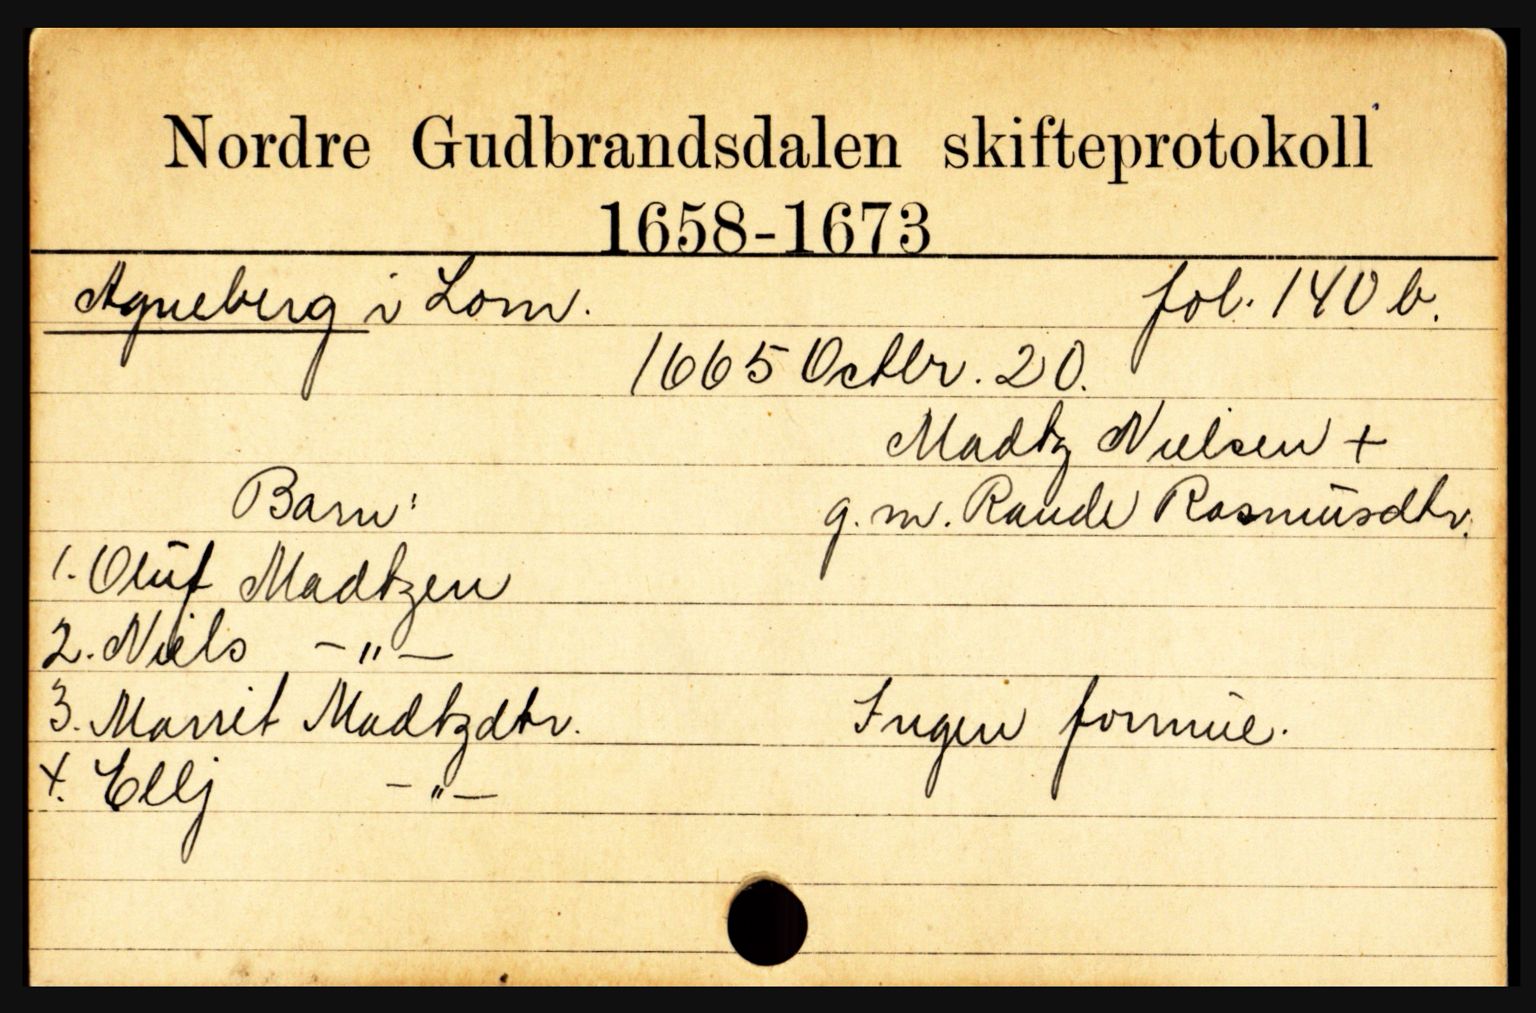 Nordre Gudbrandsdalen skifteprotokoll
1658-1673
Agneberg i Lom. fol. 140 b.
1665 Octbr. 20.
Madtz Nielsen +
Barn: g. m. Rande Rasmusdtr.
1. Oluf Madtzen
2. Niels -"-
3. Marrit Madtzdtr. Ingen formue.
4. Ellj -"-